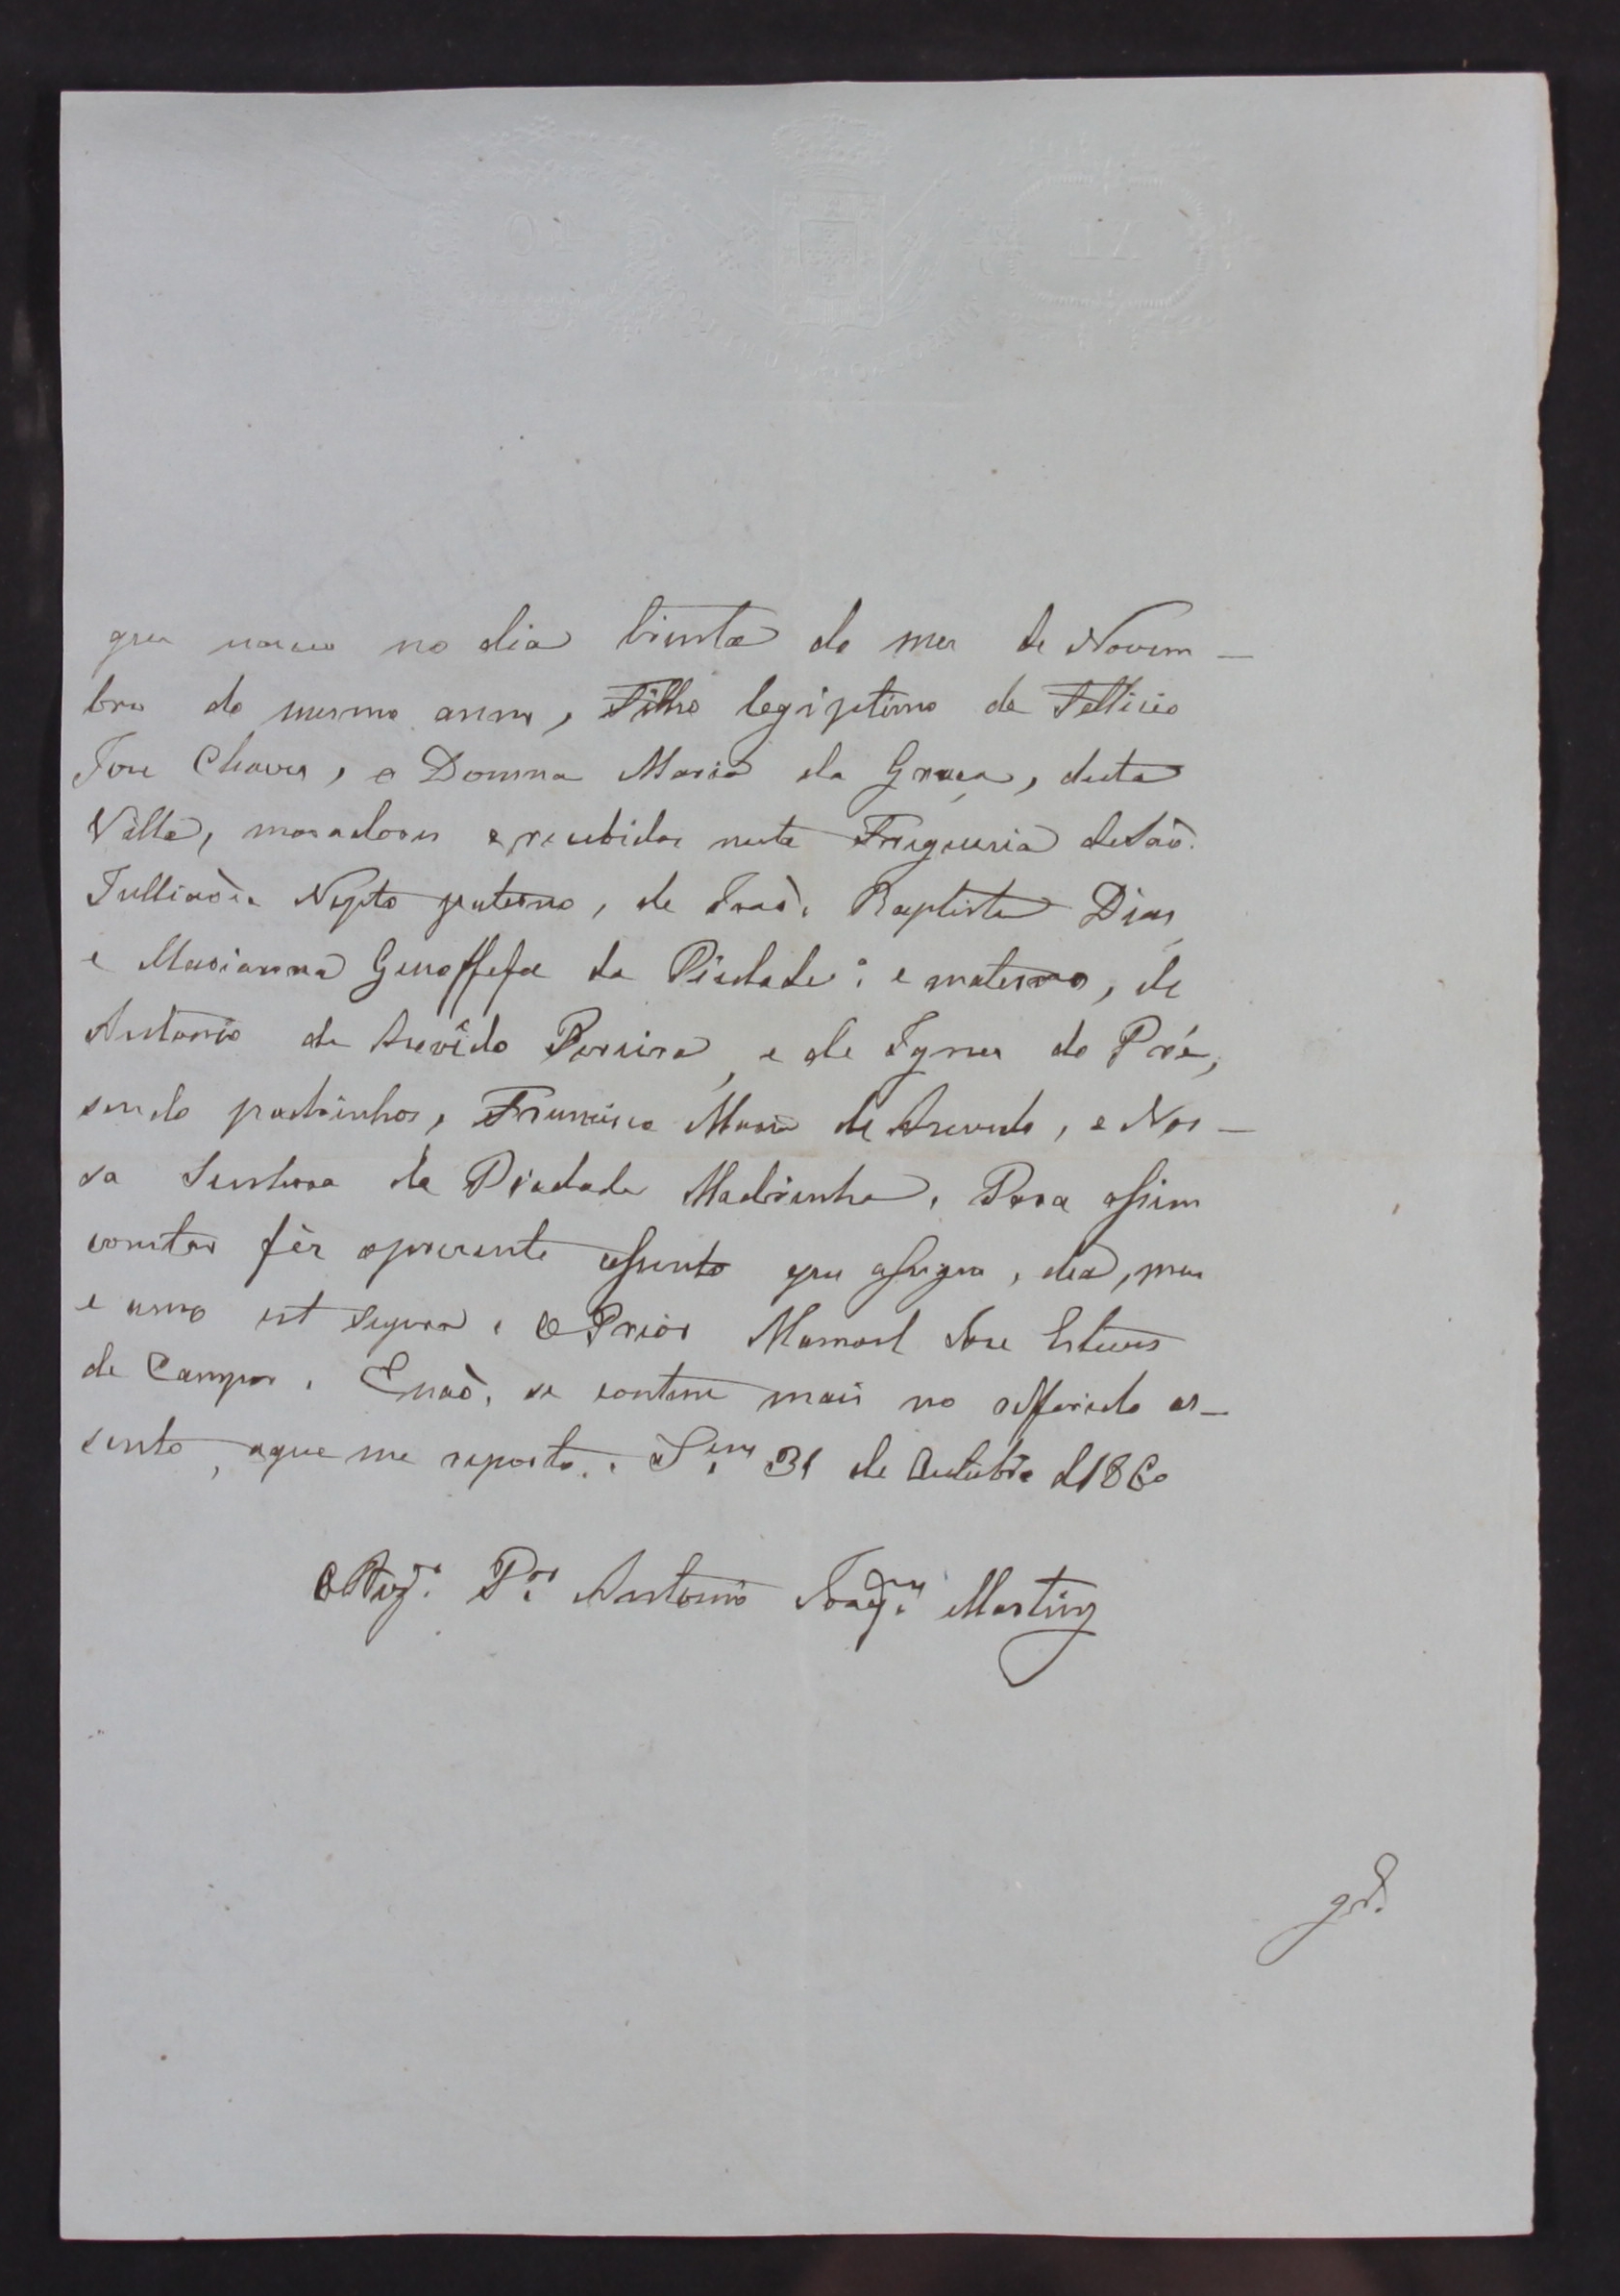 que naceo no dia trinta do mes de Novem-
bro do mesmo anno, Filho legiptimo de Fellicio
Jose Chaves, e Donna Maria da Graça, desta
Villa, moradores e recebidos nesta Freguesia de Saò.
Julliaò. Nepto paterno, de Joaò. Baptista Dias
e Marianna Genoffefa da Piedade: e materno, de
Antonio de Azevêdo Pereira, e de Ignes do Pré,
sendo padrinhos, Francisco Maria de Azevedo, e Nos-
sa Senhora da Piedade Madrinha. Para assim
constar fèz o prezente assento que assignou, dia, mes
e anno est supra. O Prior Manoel Jose Esteves
de Campos. E naò, se contem mais no refferido as-
sento, aque me reporto. 31 de Outubro d 1860
O Pior. Antonio Joaq.m Martins